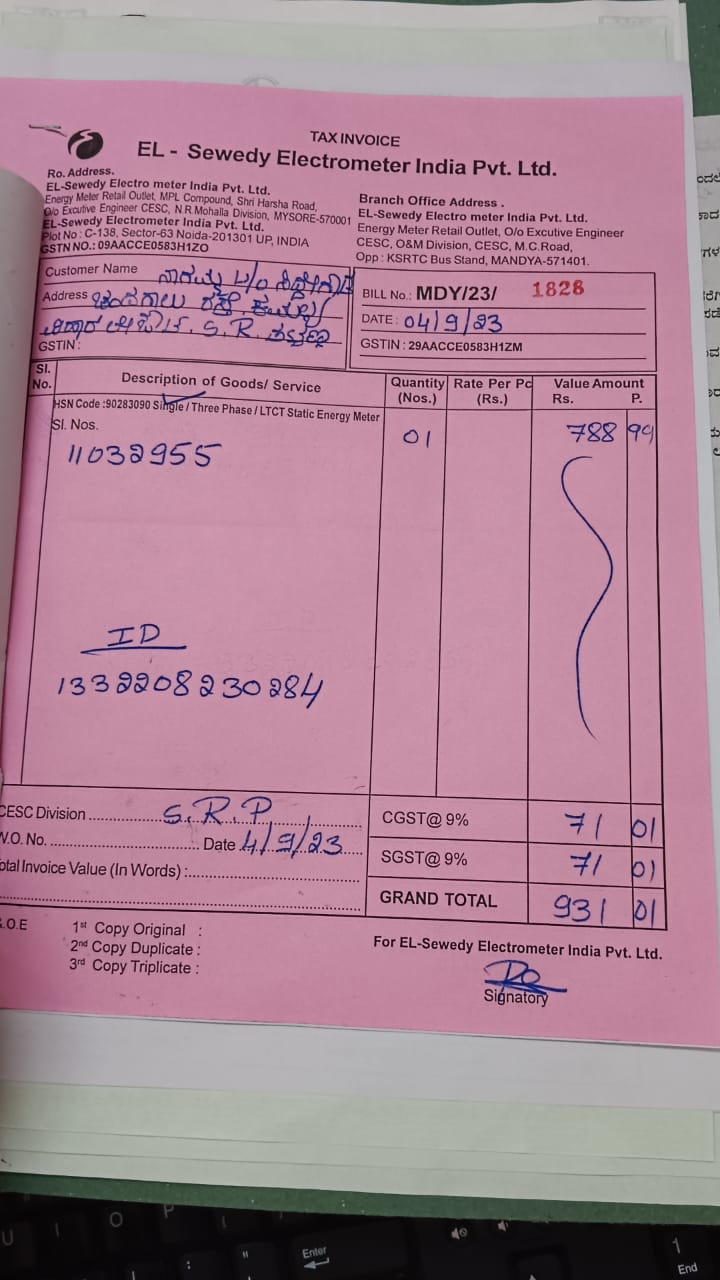 TAX INVOICE
EL - Sewedy Electrometer India Pvt. Ltd.
Ro. Address.
EL-Sewedy Electro meter India Pvt. Ltd.
Energy Meter Retail Outlet, MPL Compound, Shri Harsha Road,
O/o Excutive Engineer CESC, N.R.Mohalla Division, MYSORE-570001
EL-Sewedy Electrometer India Pvt. Ltd.
Plot No : C-138, Sector-63 Noida-201301 UP, INDIA
GSTN NO.: 09AACCE0583H1ZO
Branch Office Address .
EL-Sewedy Electro meter India Pvt. Ltd.
Energy Meter Retail Outlet, O/o Excutive Engineer
CESC, O&M Division, CESC, M.C.Road,
Opp : KSRTC Bus Stand, MANDYA-571401.
Customer Name
Address
S.R.
GSTIN :
BILL No.: MDY/23/ 1828
DATE : 04/9/23
GSTIN : 29AACCE0583H1ZM
Sl. No. Description of Goods/ Service Quantity (Nos.) Rate Per Pc (Rs.) Value Amount Rs. P.
HSN Code :90283090 Single / Three Phase / LTCT Static Energy Meter
Sl. Nos.
11032955 01 788 99
ID
1332208230284
CESC Division S.R.P.
W.O. No. Date 4/9/23
Total Invoice Value (In Words) :
CGST@ 9% 71 01
SGST@ 9% 71 01
GRAND TOTAL 931 01
.O.E
1st Copy Original :
2nd Copy Duplicate :
3rd Copy Triplicate :
For EL-Sewedy Electrometer India Pvt. Ltd.
Signatory
U I O P
Enter
1
End